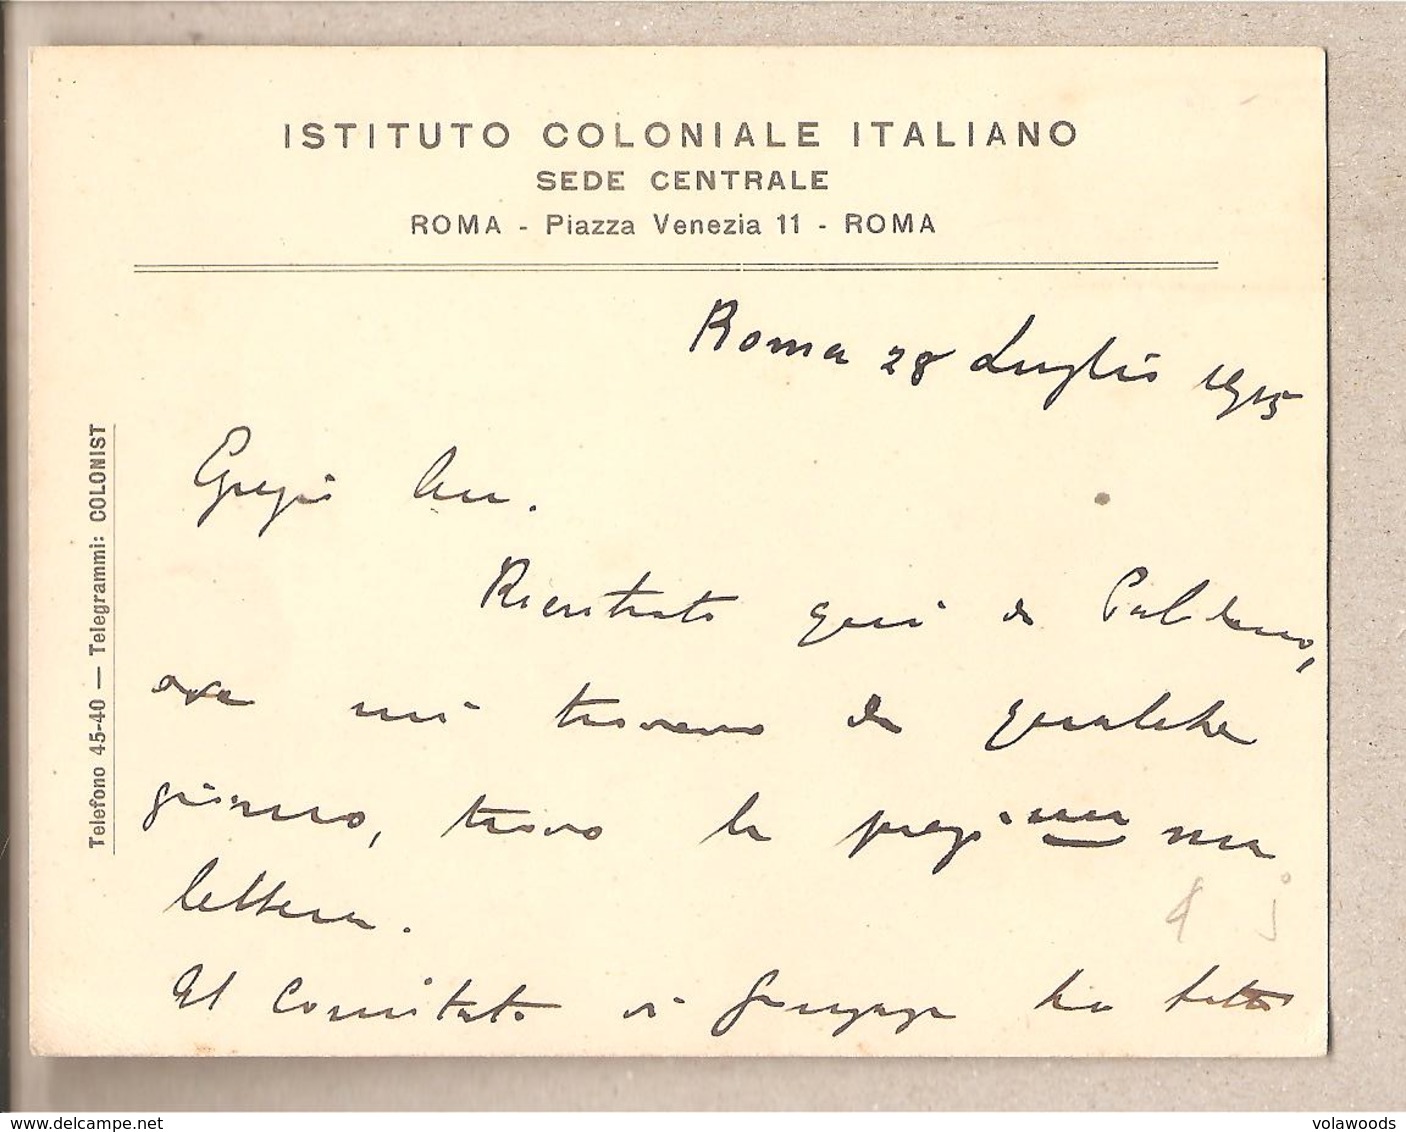 ISTITUTO COLONIALE ITALIANO
SEDE CENTRALE
ROMA - Piazza Venezia 11 - ROMA
Telefono 45-40 — Telegrammi: COLONIST
Roma 28 Luglio 1915
Egregio
Rientrato qui da
ove mi trovavo da qualche
giorno, trovo la
lettera.
Il Comitato di ha fatto
www.delcampe.net
volawoods